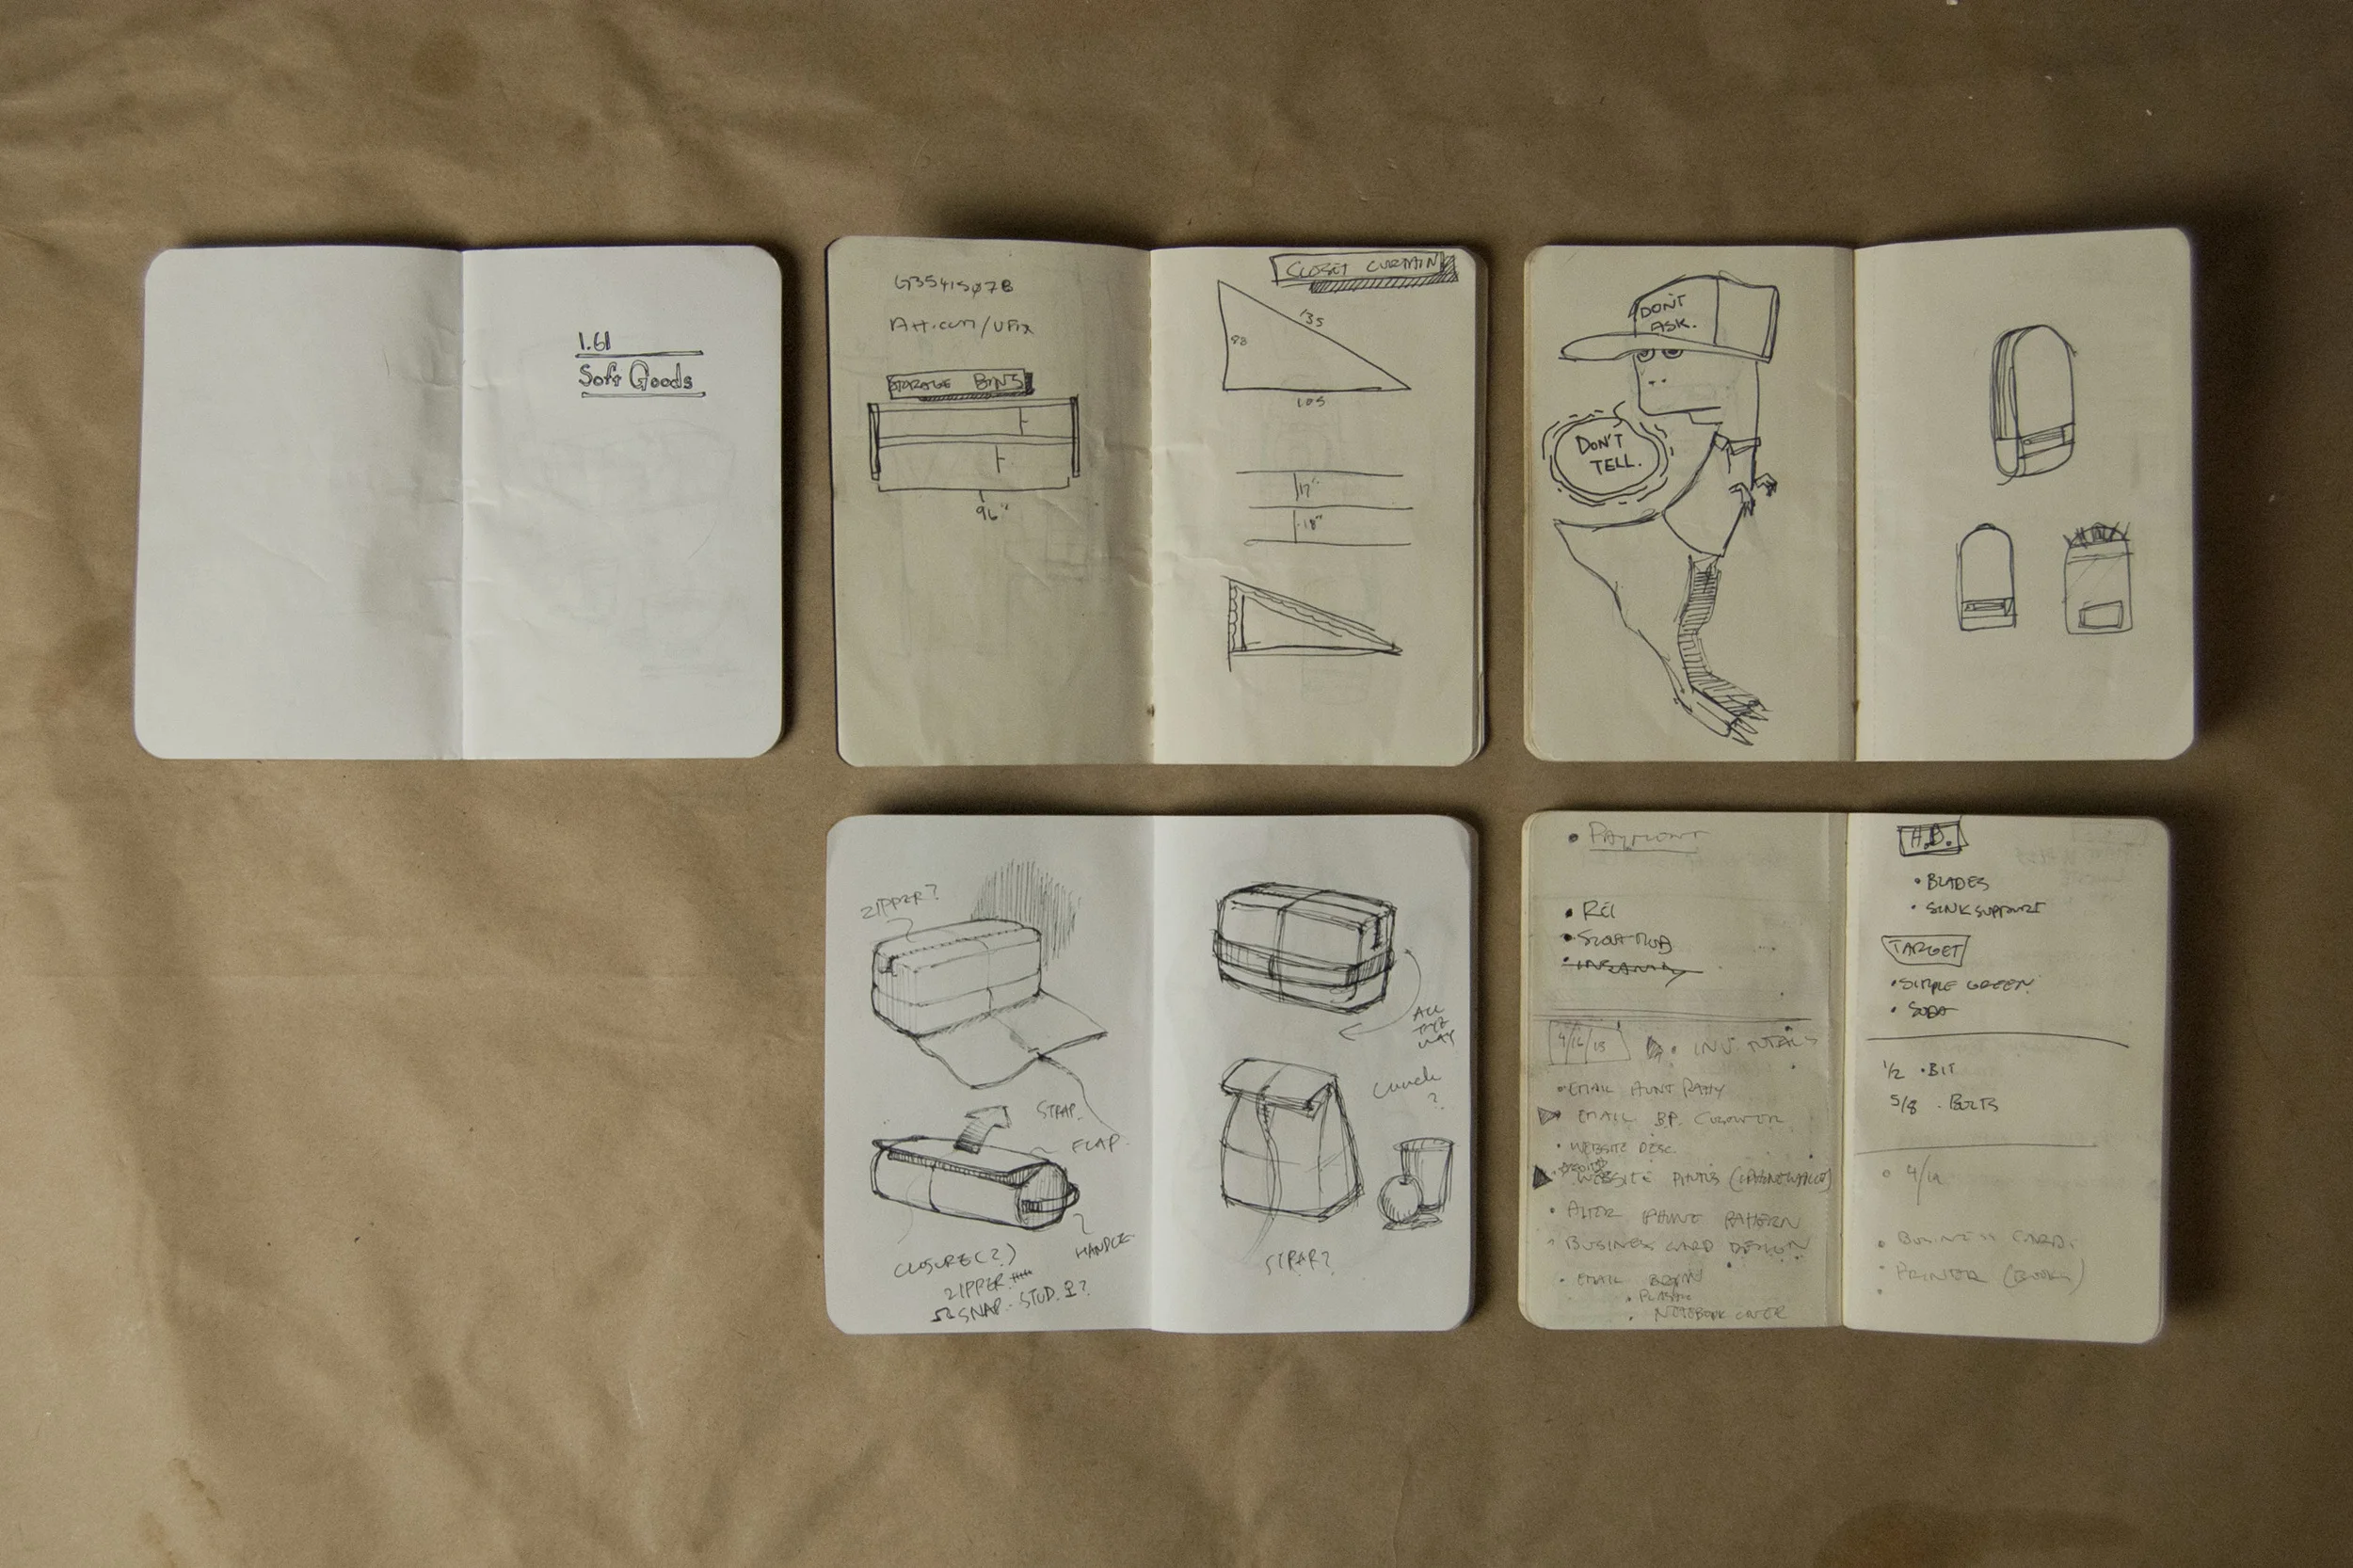 1.61
Soft Goods
G3541507B
Att.com/UFix
STORAGE BINS
96"
CLOSET CURTAIN
135
88
105
17"
18"
DON'T
ASK.
DON'T
TELL.
ZIPPER?
STRAP.
FLAP
HANDLE
CLOSURE(?)
ZIPPER
SNAP. STUD. ?
ALL
THE
WAY
LUNCH
?
STRAP?
• PAYMENT
• REI
4/16/13
• INV. TOTALS
• EMAIL AUNT PATTY
EMAIL B.P.
• WEBSITE DESC.
WEBSITE PHOTOS
• ALTER IPHONE PATTERN
• BUSINESS CARD DESIGN
• EMAIL BRYAN
• PLASTIC
• NOTEBOOK COVER
H.D.
• BLADES
• SINK SUPPORT
TARGET
• SIMPLE GREEN
• SODA
1/2 • BIT
5/8 • BOLTS
• BUSINESS CARDS
• PRINTER (BOOKS)